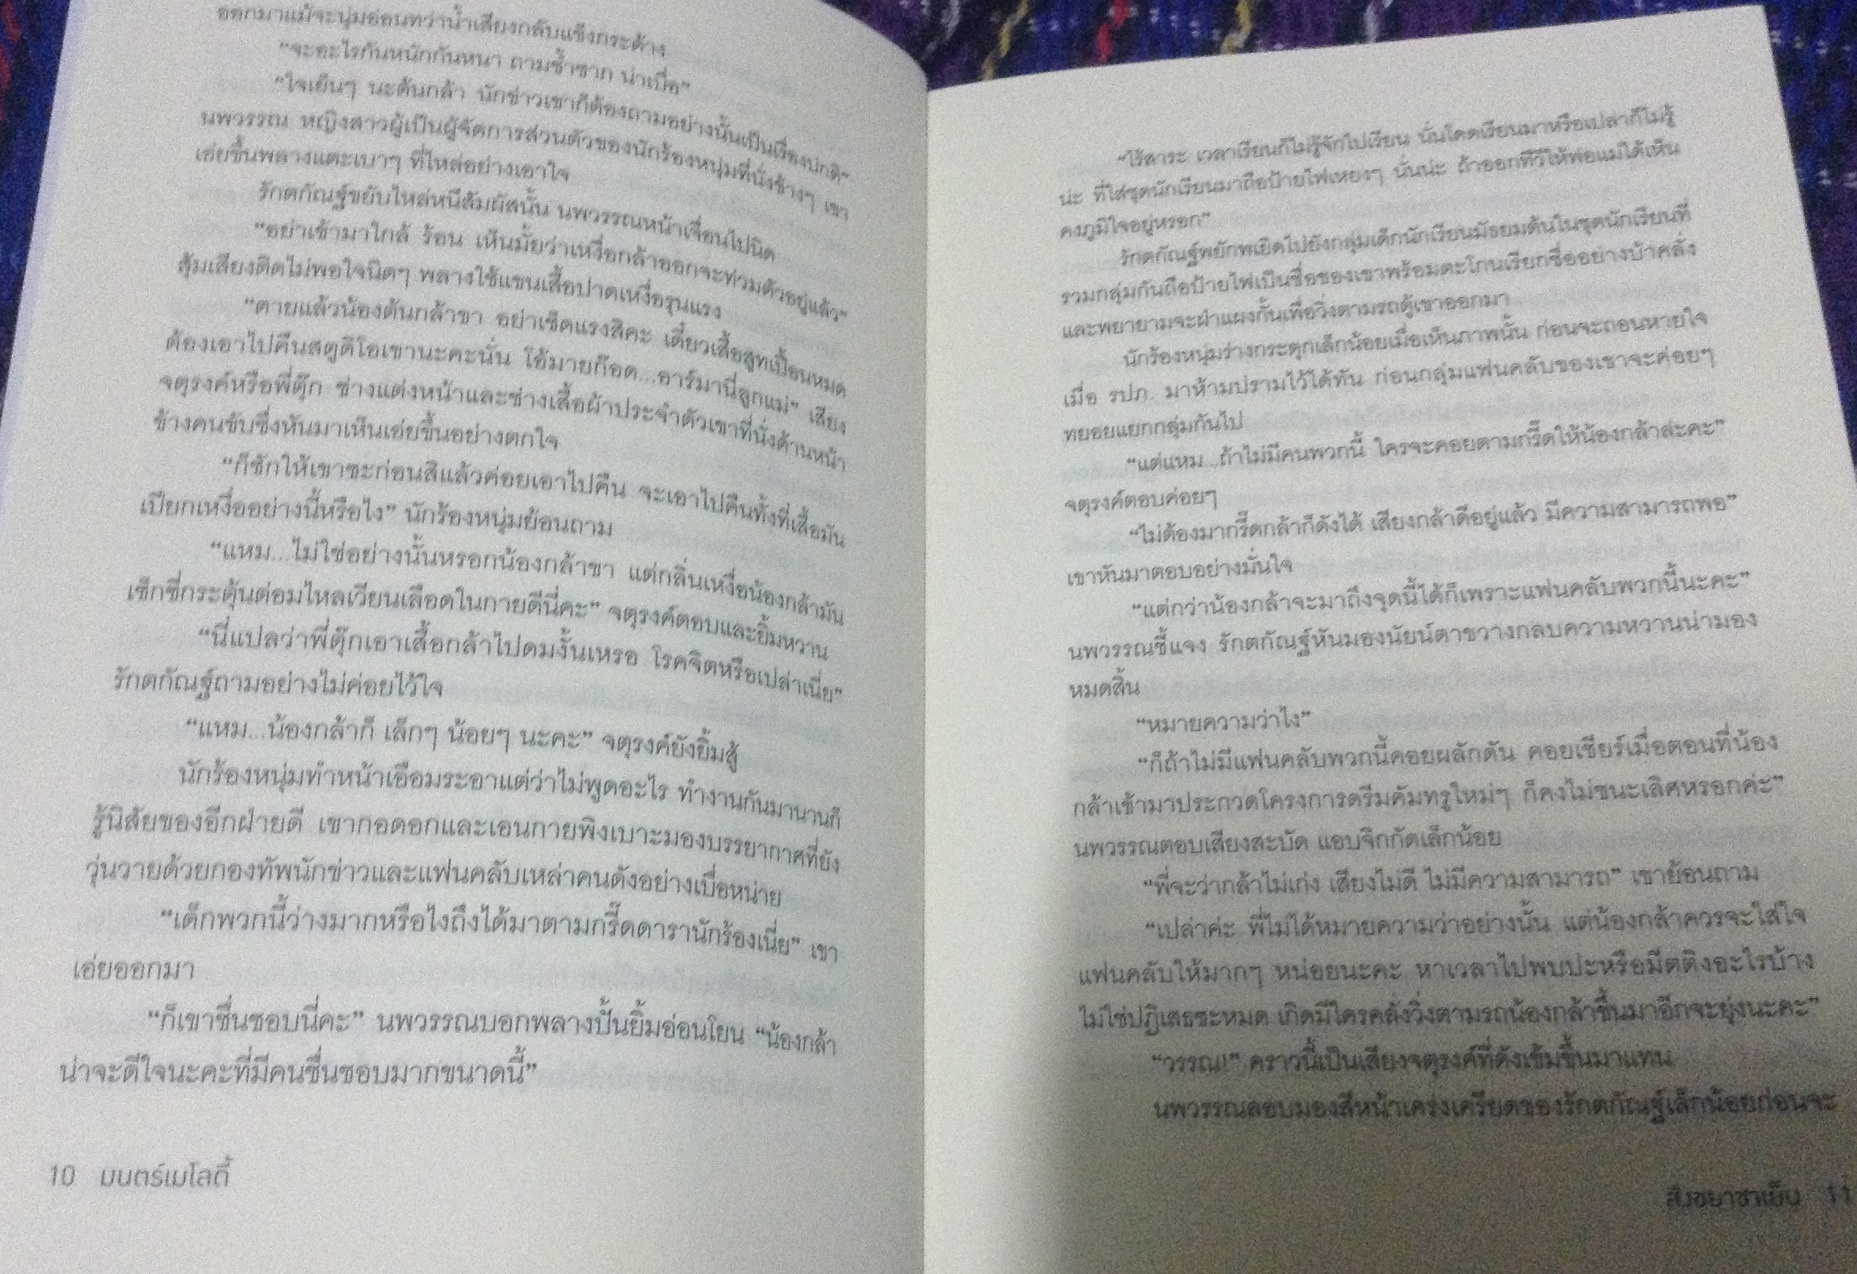 ออกมาแม้จะนุ่มอ่อนทว่าน้ำเสียงกลับแข็งกระด้าง
“จะอะไรกันหนักกันหนา ถามซ้ำซาก น่าเบื่อ”
“ใจเย็นๆ นะต้นกล้า นักข่าวเขาก็ต้องถามอย่างนั้นเป็นเรื่องปกติ”
นพวรรณ หญิงสาวผู้เป็นผู้จัดการส่วนตัวของนักร้องหนุ่มที่นั่งข้างๆ เขา
เอ่ยขึ้นพลางแตะเบาๆ ที่ไหล่อย่างเอาใจ
รักตกัณฐ์ขยับไหล่หนีสัมผัสนั้น นพวรรณหน้าเจื่อนไปนิด
“อย่าเข้ามาใกล้ ร้อน เห็นมั้ยว่าเหงื่อกล้าออกจะท่วมตัวอยู่แล้ว”
สุ้มเสียงติดไม่พอใจนิดๆ พลางใช้แขนเสื้อปาดเหงื่อรุนแรง
“ตายแล้วน้องต้นกล้าขา อย่าเช็ดแรงสิคะ เดี๋ยวเสื้อสูทเปื้อนหมด
ต้องเอาไปคืนสตูดิโอเขานะคะนั่น โอ้มายก๊อด...อาร์มานี่ลูกแม่” เสียง
จตุรงค์หรือพี่ตุ๊ก ช่างแต่งหน้าและช่างเสื้อผ้าประจำตัวเขาที่นั่งด้านหน้า
ข้างคนขับซึ่งหันมาเห็นเอ่ยขึ้นอย่างตกใจ
“ก็ซักให้เขาซะก่อนสิแล้วค่อยเอาไปคืน จะเอาไปคืนทั้งที่เสื้อมัน
เปียกเหงื่ออย่างนี้หรือไง” นักร้องหนุ่มย้อนถาม
“แหม...ไม่ใช่อย่างนั้นหรอกน้องกล้าขา แต่กลิ่นเหงื่อน้องกล้ามัน
เซ็กซี่กระตุ้นต่อมไหลเวียนเลือดในกายดีนี่คะ” จตุรงค์ตอบและยิ้มหวาน
“นี่แปลว่าพี่ตุ๊กเอาเสื้อกล้าไปดมงั้นเหรอ โรคจิตหรือเปล่าเนี่ย”
รักตกัณฐ์ถามอย่างไม่ค่อยไว้ใจ
“แหม...น้องกล้าก็ เล็กๆ น้อยๆ นะคะ” จตุรงค์ยังยิ้มสู้
นักร้องหนุ่มทำหน้าเอือมระอาแต่ว่าไม่พูดอะไร ทำงานกันมานานก็
รู้นิสัยของอีกฝ่ายดี เขากอดอกและเอนกายพิงเบาะมองบรรยากาศที่ยัง
วุ่นวายด้วยกองทัพนักข่าวและแฟนคลับเหล่าคนดังอย่างเบื่อหน่าย
“เด็กพวกนี้ว่างมากหรือไงถึงได้มาตามกรี๊ดดารานักร้องเนี่ย” เขา
เอ่ยออกมา
“ก็เขาชื่นชอบนี่คะ” นพวรรณบอกพลางปั้นยิ้มอ่อนโยน “น้องกล้า
น่าจะดีใจนะคะที่มีคนชื่นชอบมากขนาดนี้”
10 มนตร์เมโลดี้
“ไร้สาระ เวลาเรียนก็ไม่รู้จักไปเรียน นั่นโดดเรียนมาหรือเปล่าก็ไม่รู้
น่ะ ที่ใส่ชุดนักเรียนมาถือป้ายไฟเหยงๆ นั่นน่ะ ถ้าออกทีวีให้พ่อแม่ได้เห็น
คงภูมิใจอยู่หรอก”
รักตกัณฐ์พยักพเยิดไปยังกลุ่มเด็กนักเรียนมัธยมต้นในชุดนักเรียนที่
รวมกลุ่มกันถือป้ายไฟเป็นชื่อของเขาพร้อมตะโกนเรียกชื่ออย่างบ้าคลั่ง
และพยายามจะฝ่าแผงกั้นเพื่อวิ่งตามรถตู้เขาออกมา
นักร้องหนุ่มร่างกระตุกเล็กน้อยเมื่อเห็นภาพนั้น ก่อนจะถอนหายใจ
เมื่อ รปภ. มาห้ามปรามไว้ได้ทัน ก่อนกลุ่มแฟนคลับของเขาจะค่อยๆ
ทยอยแยกกลุ่มกันไป
“แต่แหม...ถ้าไม่มีคนพวกนี้ ใครจะคอยตามกรี๊ดให้น้องกล้าล่ะคะ”
จตุรงค์ตอบค่อยๆ
“ไม่ต้องมากรี๊ดกล้าก็ดังได้ เสียงกล้าดีอยู่แล้ว มีความสามารถพอ”
เขาหันมาตอบอย่างมั่นใจ
“แต่กว่าน้องกล้าจะมาถึงจุดนี้ได้ก็เพราะแฟนคลับพวกนี้นะคะ”
นพวรรณชี้แจง รักตกัณฐ์หันมองนัยน์ตาขวางกลบความหวานน่ามอง
หมดสิ้น
“หมายความว่าไง”
“ก็ถ้าไม่มีแฟนคลับพวกนี้คอยผลักดัน คอยเชียร์เมื่อตอนที่น้อง
กล้าเข้ามาประกวดโครงการดรีมคัมทรูใหม่ๆ ก็คงไม่ชนะเลิศหรอกค่ะ”
นพวรรณตอบเสียงสะบัด แอบจิกกัดเล็กน้อย
“พี่จะว่ากล้าไม่เก่ง เสียงไม่ดี ไม่มีความสามารถ” เขาย้อนถาม
“เปล่าค่ะ พี่ไม่ได้หมายความว่าอย่างนั้น แต่น้องกล้าควรจะใส่ใจ
แฟนคลับให้มากๆ หน่อยนะคะ หาเวลาไปพบปะหรือมีตติงอะไรบ้าง
ไม่ใช่ปฏิเสธซะหมด เกิดมีใครคลั่งวิ่งตามรถน้องกล้าขึ้นมาอีกจะยุ่งนะคะ”
“วรรณ!” คราวนี้เป็นเสียงจตุรงค์ที่ดังเข้มขึ้นมาแทน
นพวรรณลอบมองสีหน้าเคร่งเครียดของรักตกัณฐ์เล็กน้อยก่อนจะ
สังขยาชาเย็น 11